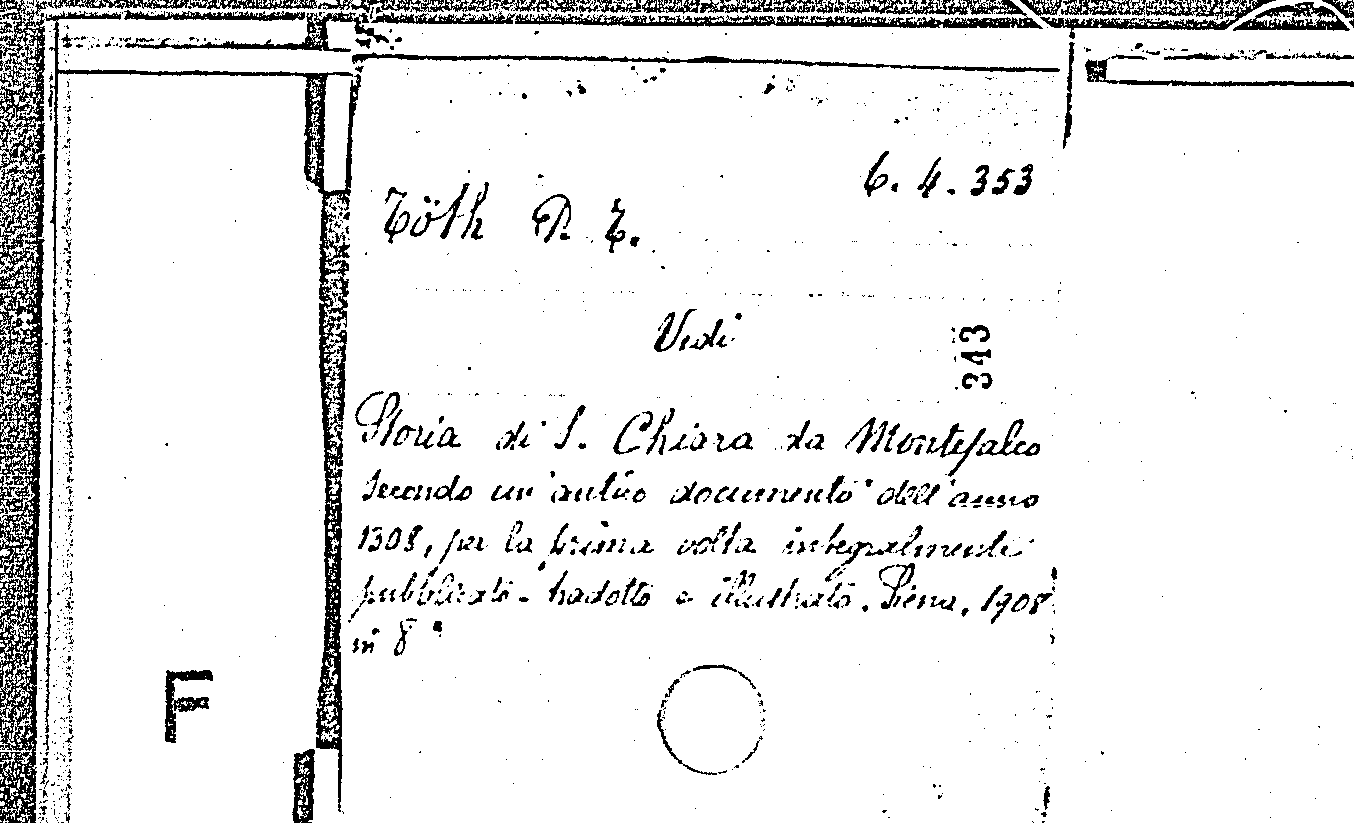 6. 4. 353
Töth P. T.
Vedi
343
Storia di S. Chiara da Montefalco
secondo un antico documento dell'anno
1308, per la prima volta integralmente
pubblicato - tradotto e illustrato. Siena, 1908
in 8°
F